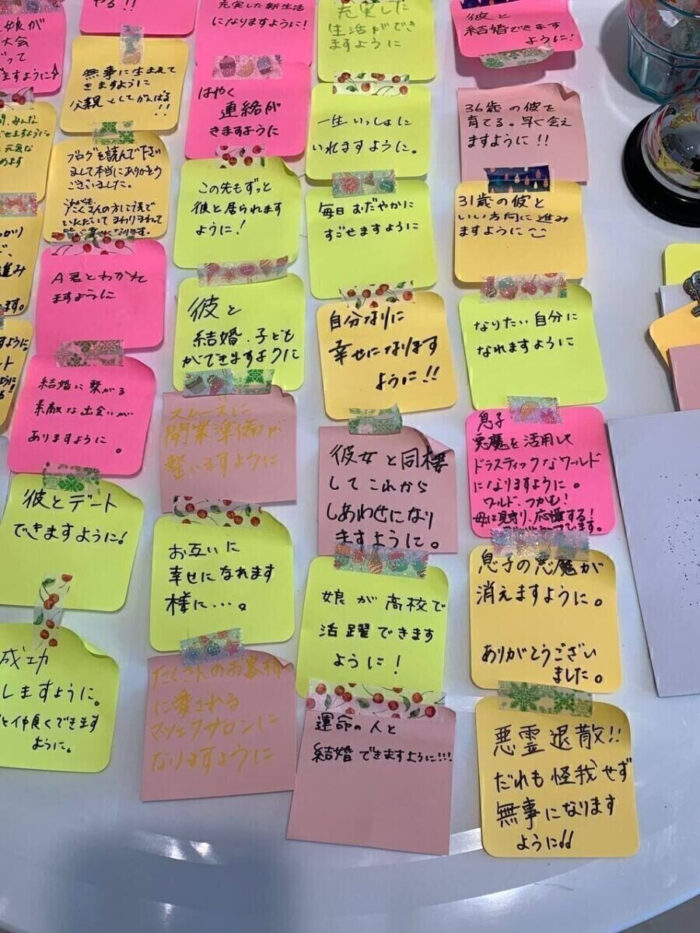 娘が
大会
やる!!
無事に生まれて
きますように
父親としてがんばる
!!
ブログを読んで下さい
まして本当にありがとう
ございました。
A君とわかれ
ますように
結婚に繋がる
素敵な出会いが
ありますように。
彼とデート
できますように!
成功
しますように。
と仲良くできます
ように。
充実した新生活
になりますように!
はやく
連絡が
きますように
この先もずっと
彼と居られます
ように!
彼と
結婚・子ども
ができますように
スムーズに
開業準備が
整いますように
お互いに
幸せになれます
様に…。
たくさんのお客様
に愛される
マツエクサロンに
なりますように
充実した
生活ができ
ますように
一生いっしょに
いれますように。
毎日おだやかに
すごせますように
自分なりに
幸せになります
ように!!
彼女と同棲
してこれから
しあわせになり
ますように。
娘が高校で
活躍できます
ように!
運命の人と
結婚できますように!!!
彼と
結婚できます
ように!
36歳の彼を
育てる。早く会え
ますように!!
31歳の彼と
いい方向に進み
ますように
なりたい自分に
なれますように
息子
悪魔を活用して
ドラスティックなワールド
になりますように。
ワールド、つかむ!
母は見守り、応援する!
息子の悪魔が
消えますように。
ありがとうござい
ました。
悪霊退散!!
だれも怪我せず
無事になります
ように